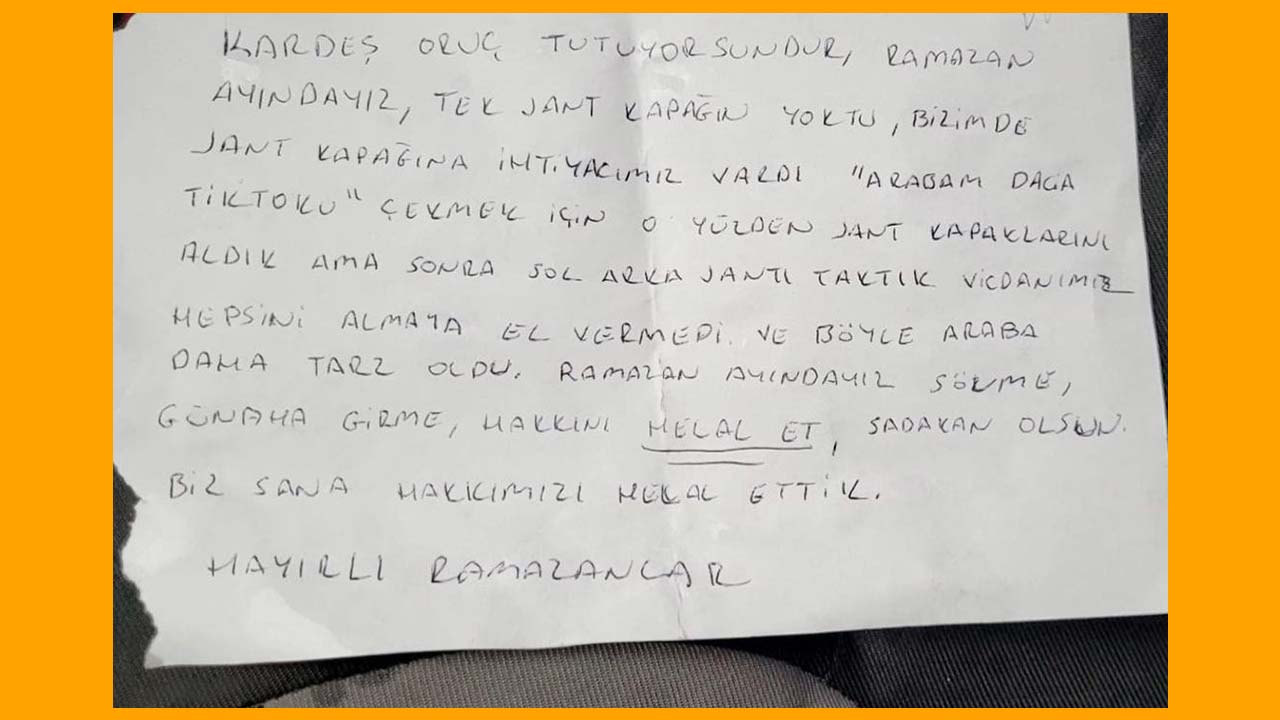 KARDEŞ ORUÇ TUTUYORSUNDUR, RAMAZAN
AYINDAYIZ, TEK JANT KAPAĞIN YOKTU, BİZİMDE
JANT KAPAĞINA İHTİYACIMIZ VARDI "ARABAM DAĞA
TİKTOKU" ÇEKMEK İÇİN O YÜZDEN JANT KAPAKLARINI
ALDIK AMA SONRA SOL ARKA JANTI TAKTIK VİCDANIMIZ
HEPSİNİ ALMAYA EL VERMEDİ. VE BÖYLE ARABA
DAHA TARZ OLDU. RAMAZAN AYINDAYIZ SÖVME,
GÜNAHA GİRME, HAKKINI HELAL ET, SADAKAN OLSUN.
BİZ SANA HAKKIMIZI HELAL ETTİK.
HAYIRLI RAMAZANLAR